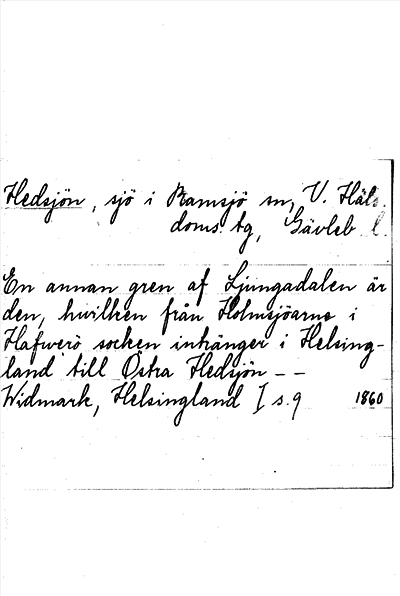 Hedsjön, sjö i Ramsjö sn, V. Häls.
doms. tg, Gävleb. l.
En annan gren af Ljungadalen är
den, hvilken från Holmsjöarne i
Hafwerö socken intränger i Helsing-
land till Östra Hedsjön - -
Widmark, Helsingland I s. 9 1860